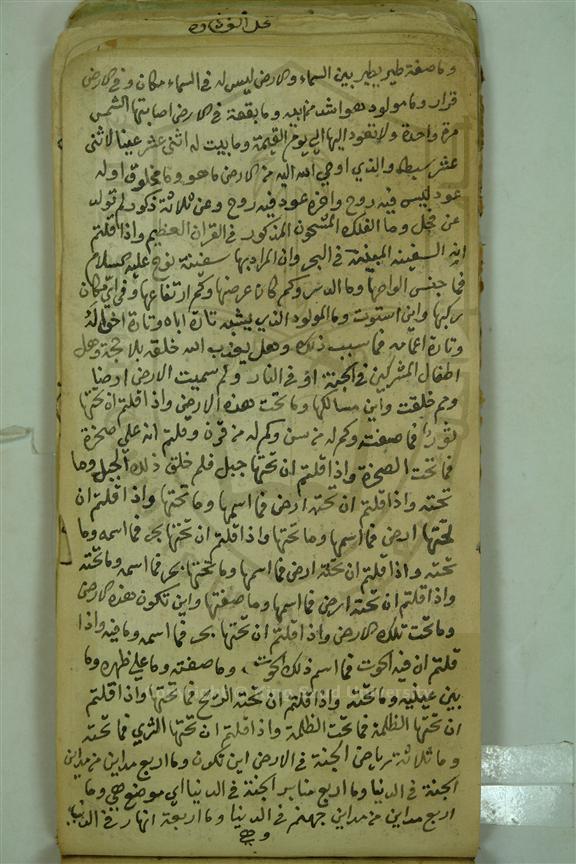 وما صفة طير يطير بين السماء والارض ليس له في السماء مكان وفي الارض
قرار وما مولود هو اشد من ابيه وما بقعة في الارض اصابتها الشمس
مرة واحدة ولا تعود اليها الى يوم القيمة وما بيت له اثنى عشر عينا لاثنى
عشر سبط والذي اوحى الله اليه من الارض ما هو وما مخلوق اوله
عود ليس فيه روح واخره عود فيه روح وعن ثلاثة ذكور لم تولد
عن فحل وما الفلك المشحون المذكور في القران العظيم واذا قلتم
انه السفينة المبينة في البحر وان المراد بها سفينة نوح عليه السلام
فما جنس الواحها وما الدسر وكم كان عرضها وكم ارتفاعها وفي اي مكان
ركبها واين استوت وما المولود الذي يشبه تارة اباه وتارة اخواله
وتارة اعمامه فما سبب ذلك وهل يعذب الله خلقه بلا حجة وهل
اطفال المشركين في الجنة او في النار ولم سميت الارض ارضا
ومم خلقت واين مسالكها وما تحت هذه الارض واذا قلتم ان تحتها
ثورا فما صفته وكم له من سن وكم له من قرن وقلتم انه على صخرة
فما تحت الصخرة واذا قلتم ان تحتها جبل فلم خلق ذلك الجبل وما
تحته واذا قلتم ان تحته ارض فما اسمها وما تحتها واذا قلتم ان
تحتها ارض فما اسمها وما تحتها واذا قلتم ان تحتها بحر فما اسمه وما
تحته واذا قلتم ان تحته ارض فما اسمها وما تحتها بحر فما اسمه وما تحته
واذا قلتم ان تحته ارض فما اسمها وما صفتها واين تكون هذه الارض
وما تحت تلك الارض واذا قلتم ان تحتها بحر فما اسمه وما فيه واذا
قلتم ان فيه الحوت فما اسم ذلك الحوت وما صفته وما على ظهره وما
بين عينيه وما تحته واذا قلتم ان تحته الريح فما تحتها واذا قلتم
ان تحتها الظلمة فما تحت الظلمة واذا قلتم ان تحتها الثرى فما تحته
وما ثلاثة رياض الجنة في الارض اين تكون وما اربع مداين من مداين
الجنة في الدنيا وما اربع منابر الجنة في الدنيا اي موضع هي وما
اربع مداين من مداين جهنم في الدنيا وما اربعة انهار في الدنيا